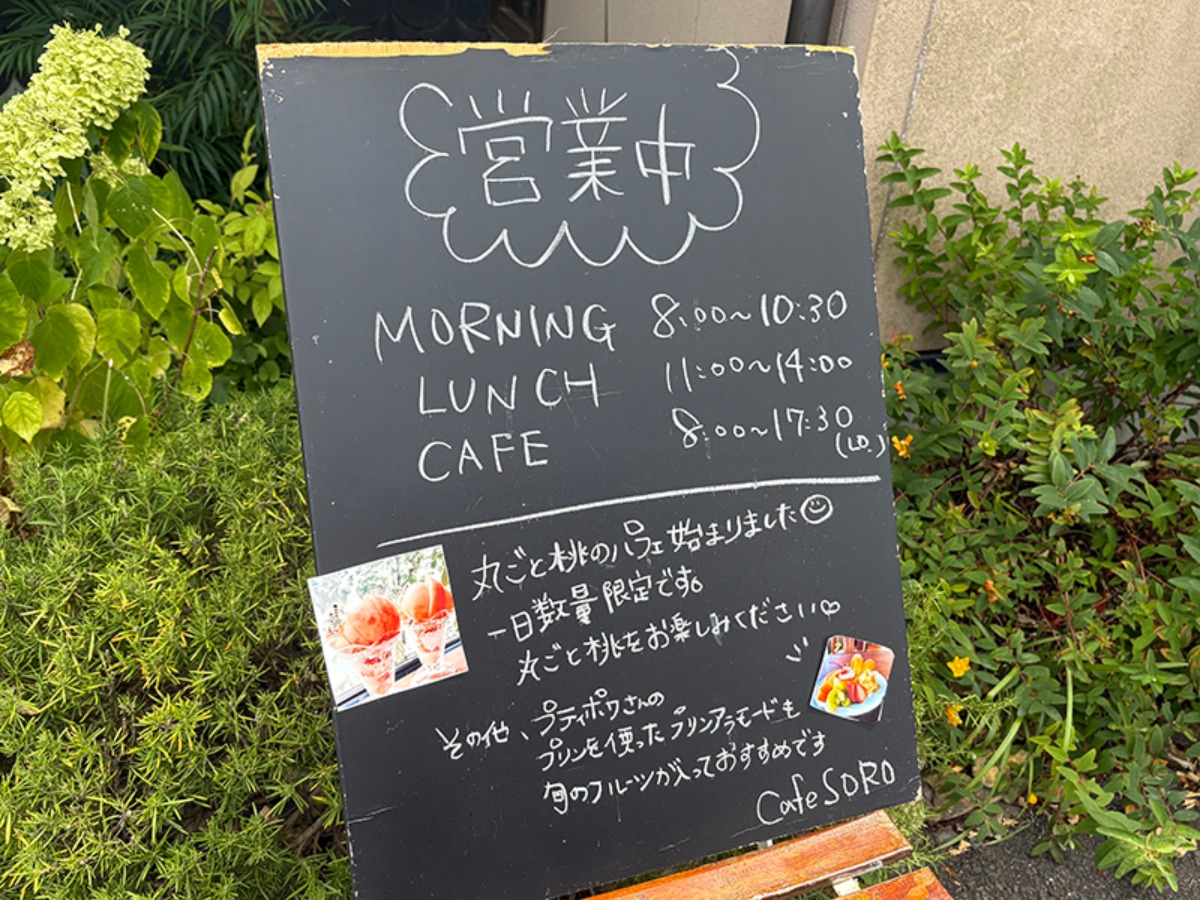 営業中
MORNING 8:00~10:30
LUNCH 11:00~14:00
CAFE 8:00~17:30
(LO.)
丸ごと桃のパフェ始まりました
一日数量限定です。
丸ごと桃をお楽しみください♡
その他、プティポワさんの
プリンを使ったプリンアラモードも
旬のフルーツが入っておすすめです
Cafe SORO